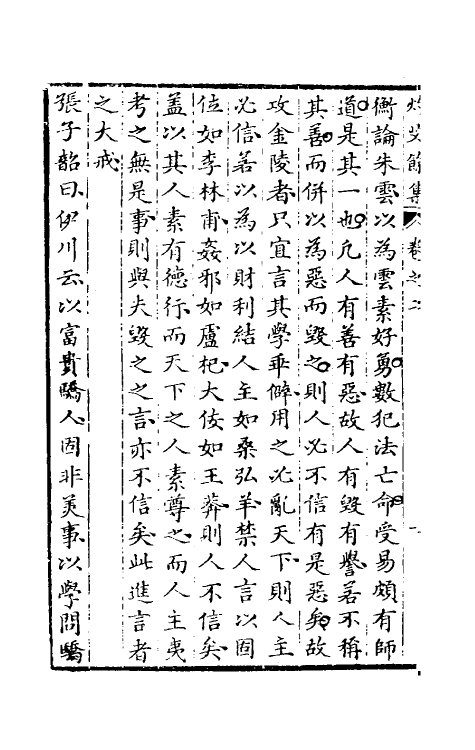 節集 卷之二
衡論朱雲以為雲素好勇數犯法亡命受易頗有師
道是其一也凡人有善有惡故人有毀有譽若不稱
其善而併以為惡而毀之則人必不信有是惡矣故
攻金陵者只宜言其學乖僻用之必亂天下則人主
必信若以為以財利結人主如桑弘羊禁人言以固
位如李林甫姦邪如盧杞大佞如王莽則人不信矣
盖以其人素有德行而天下之人素尊之而人主夷
考之無是事則與夫毀之之言亦不信矣此進言者
之大戒
張子韶曰伊川云以富貴驕人固非美事以學問驕